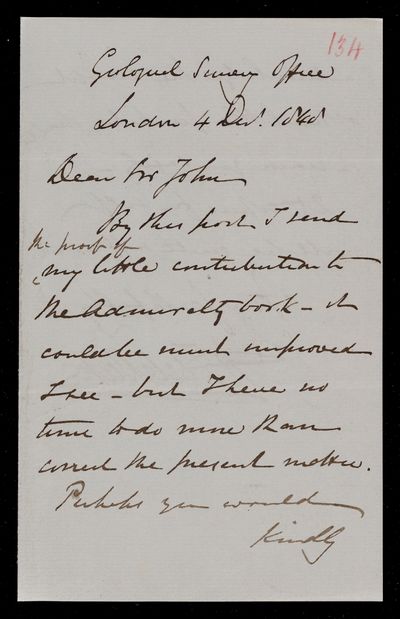 134
Geological Survey Office
London 4 Dec. 1848
Dear Sir John
By this post I send
the proof of
my little contribution to
the Admiralty book - it
could be much improved
I see - but I have no
time to do more than
correct the present matter.
Perhaps you would
kindly